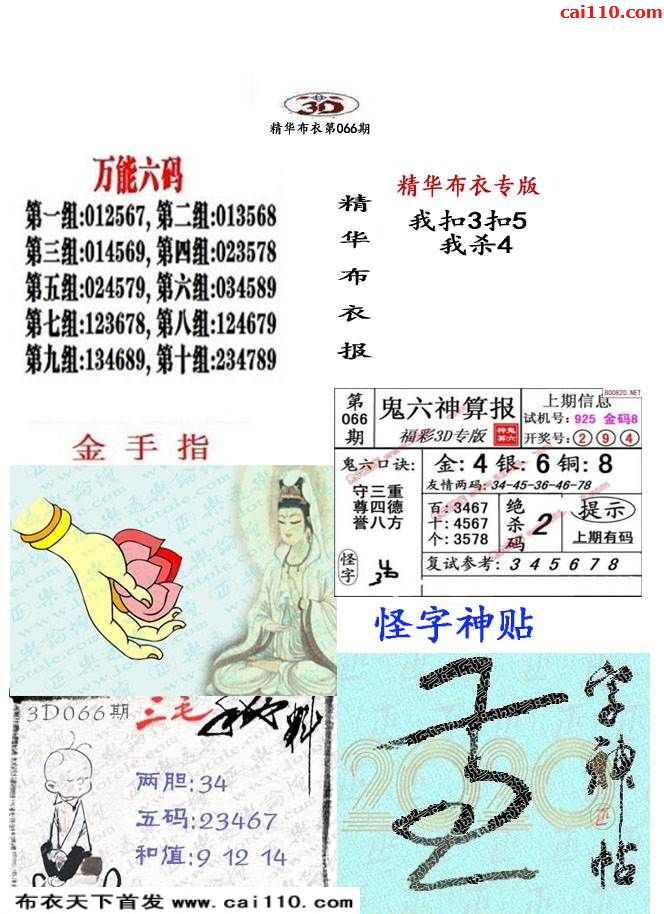 cai110.com
3D
精华布衣第066期
万能六码
第一组:012567, 第二组:013568
第三组:014569, 第四组:023578
第五组:024579, 第六组:034589
第七组:123678, 第八组:124679
第九组:134689, 第十组:234789
精华布衣报
精华布衣专版
我扣3扣5
我杀4
金手指
BOO820.NET
第066期
鬼六神算报
福彩3D专版
上期信息
试机号: 925 金码8
开奖号: 2 9 4
鬼六口诀:
守三重
尊四德
誉八方
金: 4 银: 6 铜: 8
友情两码: 34-45-36-46-78
百: 3467
十: 4567
个: 3578
绝杀码
2
提示
上期有码
怪字
复试参考: 3 4 5 6 7 8
怪字神贴
3D066期
三毛
两胆:34
五码:23467
和值:9 12 14
2020
字神帖
布衣天下首发 www.cai110.com